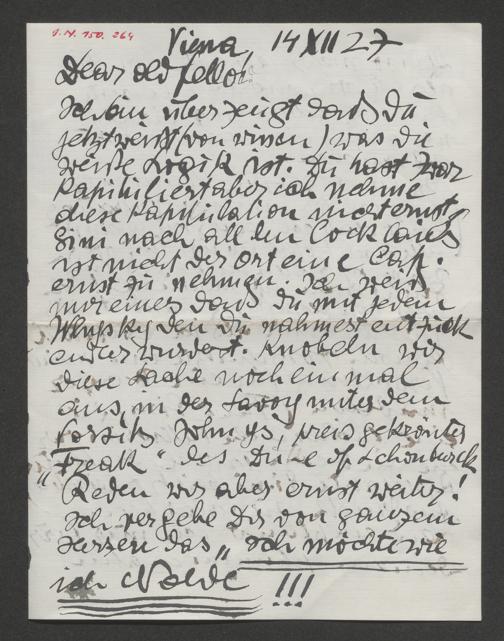 I.N. 150.264
Vienna, 14 XII 27
Dear old fellow!
Ich bin überzeugt dass du
jetzt weisst (von wissen) was die
weisse Logik ist. Du hast zwar
kapituliert aber ich nehme
diese Kapitulation nicht ernst
Bini nach all den Cocktails
ist nicht der Ort eine Cap.
ernst zu nehmen. Ich weiss
nur eines dass du mit jedem
Whysky den du nahmest entzück
ender wurdest. Knobeln wir
diese Sache noch einmal
aus, in der Savoy unter dem
Vorsitz Johnys, preisgekrönter
„Freak" des Du-e of Schönburck
Reden wir aber ernst weiter!
Ich vergebe dir von ganzem
Herzen das „ich möchte wie
ich Nolde !!!